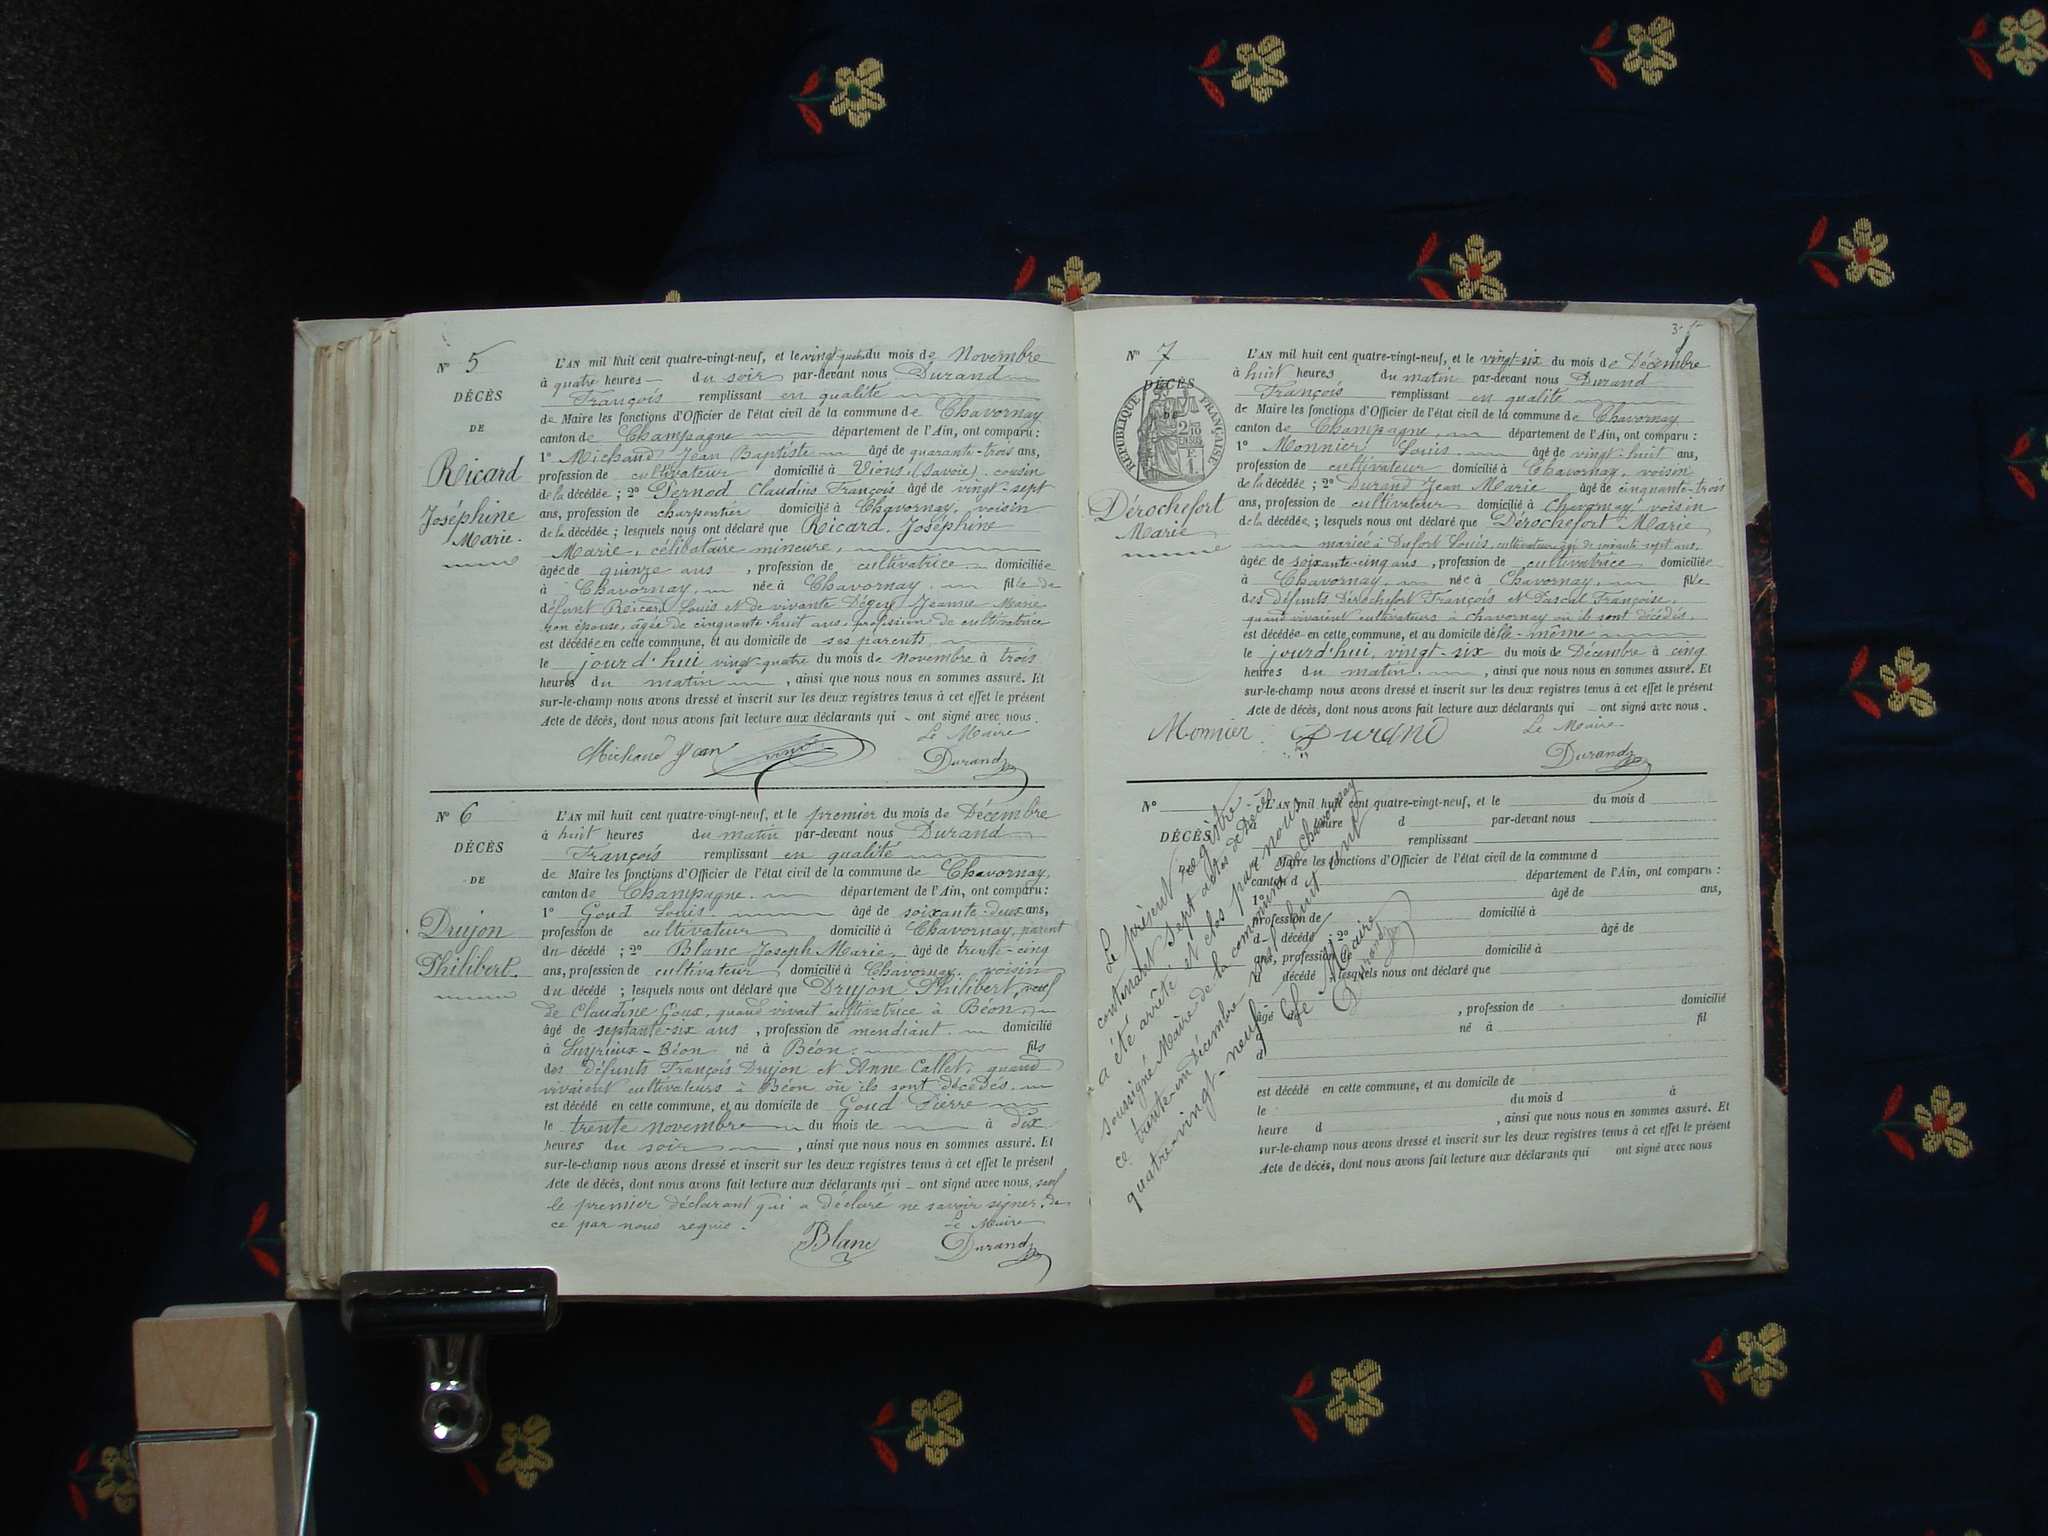 N° 5
DÉCÈS
DE
Ricard
Joséphine
Marie.
L'AN mil huit cent quatre-vingt-neuf, et le vingt-quatre du mois de Novembre
à quatre heures du soir par-devant nous Durand
François remplissant en qualité
de Maire les fonctions d'Officier de l'état civil de la commune de Chavornay
canton de Champagne département de l'Ain, ont comparu :
1° Michaud Jean Baptiste âgé de quarante-trois ans,
profession de cultivateur domicilié à Vions (Savoie). cousin
de la décédée ; 2° Pernod Claudius François âgé de vingt-sept
ans, profession de charpentier domicilié à Chavornay, voisin
de la décédée ; lesquels nous ont déclaré que Ricard Joséphine
Marie, célibataire mineure,
âgée de quinze ans , profession de cultivatrice domiciliée
à Chavornay, née à Chavornay, fille de
défunt Ricard Louis et de vivante Jeanne Marie
son épouse, âgée de cinquante-huit ans, profession de cultivatrice
est décédée en cette commune, et au domicile de ses parents
le jourd'hui vingt-quatre du mois de Novembre à trois
heures du matin , ainsi que nous nous en sommes assuré. Et
sur-le-champ nous avons dressé et inscrit sur les deux registres tenus à cet effet le présent
Acte de décès, dont nous avons fait lecture aux déclarants qui ont signé avec nous.
Michaud Jean
Le Maire
Durand
N° 6
DÉCÈS
DE
Drujon
Philibert.
L'AN mil huit cent quatre-vingt-neuf, et le premier du mois de Décembre
à huit heures du matin par-devant nous Durand
François remplissant en qualité
de Maire les fonctions d'Officier de l'état civil de la commune de Chavornay,
canton de Champagne. département de l'Ain, ont comparu :
1° Goud Louis. âgé de soixante-deux ans,
profession de cultivateur domicilié à Chavornay, parent
du décédé ; 2° Blanc Joseph-Marie, âgé de trente-cinq
ans, profession de cultivateur domicilié à Chavornay. voisin
du décédé ; lesquels nous ont déclaré que Drujon Philibert, veuf
de Claudine Goux, quand vivait cultivatrice à Béon,
âgé de septante-six ans , profession de mendiant domicilié
à Luyrieux-Béon né à Béon. fils
des défunts François Drujon et Anne Callet, quand
vivaient cultivateurs à Béon où ils sont décédés.
est décédé en cette commune, et au domicile de Goud Pierre
le trente novembre du mois de à dix
heures du soir , ainsi que nous nous en sommes assuré. Et
sur-le-champ nous avons dressé et inscrit sur les deux registres tenus à cet effet le présent
Acte de décès, dont nous avons fait lecture aux déclarants qui ont signé avec nous, sauf
le premier déclarant qui a déclaré ne savoir signer, de
ce par nous requis.
Blanc
Le Maire
Durand
N° 7
DÉCÈS
DE
RÉPUBLIQUE FRANÇAISE
Dérochefort
Marie
L'AN mil huit cent quatre-vingt-neuf, et le vingt-six du mois de Décembre
à huit heures du matin par-devant nous Durand
François remplissant en qualité
de Maire les fonctions d'Officier de l'état civil de la commune de Chavornay
canton de Champagne, département de l'Ain, ont comparu :
1° Monnier Louis. âgé de vingt-huit ans,
profession de cultivateur domicilié à Chavornay, voisin
de la décédée ; 2° Durand Jean Marie âgé de cinquante-trois
ans, profession de cultivateur domicilié à Chavornay voisin
de la décédée ; lesquels nous ont déclaré que Dérochefort Marie
mariée à Dufort Louis, cultivateur âgé de soixante-sept ans,
âgée de soixante-cinq ans , profession de cultivatrice domiciliée
à Chavornay, née à Chavornay, fille
des défunts Dérochefort François et Pascal Françoise,
quand vivaient cultivateurs à Chavornay où ils sont décédés,
est décédée en cette commune, et au domicile d'elle-même
le jourd'hui, vingt-six du mois de Décembre à cinq
heures du matin , ainsi que nous nous en sommes assuré. Et
sur-le-champ nous avons dressé et inscrit sur les deux registres tenus à cet effet le présent
Acte de décès, dont nous avons fait lecture aux déclarants qui ont signé avec nous.
Monnier
Durand
Le Maire
Durand
N°
DÉCÈS
L'AN mil huit cent quatre-vingt-neuf, et le du mois d
heure d par-devant nous
remplissant
Maire les fonctions d'Officier de l'état civil de la commune d
canton d département de l'Ain, ont comparu :
1° âgé de ans,
profession de domicilié à
d décédé ; 2° âgé de
ans, profession de domicilié à
d décédé ; lesquels nous ont déclaré que
âgé de , profession de domicilié
né à fil
d
est décédé en cette commune, et au domicile de
le du mois d à
heure d , ainsi que nous nous en sommes assuré. Et
sur-le-champ nous avons dressé et inscrit sur les deux registres tenus à cet effet le présent
Acte de décès, dont nous avons fait lecture aux déclarants qui ont signé avec nous
Le présent registre
contenant sept actes de Décès
a été arrêté et clos par nous
soussigné Maire de la commune de Chavornay
ce trente-un Décembre mil huit cent
quatre-vingt-neuf
Le Maire
Durand